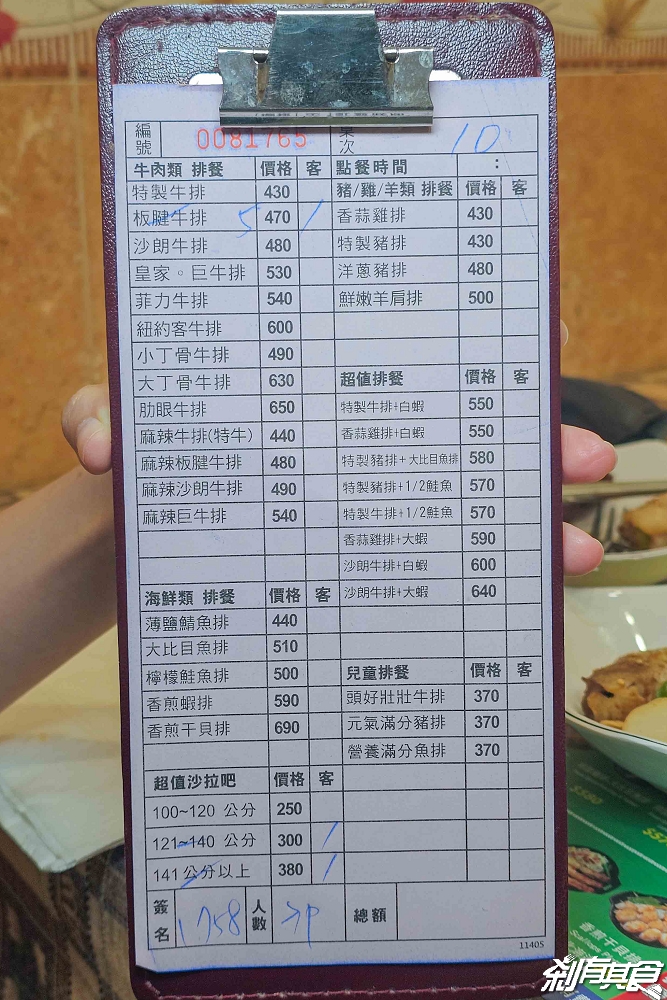 編號 0081765 桌次 10
牛肉類 排餐 價格 客 點餐時間 :
特製牛排 430 豬/雞/羊類 排餐 價格 客
板腱牛排 5 470 1 香蒜雞排 430
沙朗牛排 480 特製豬排 430
皇家。巨牛排 530 洋蔥豬排 480
菲力牛排 540 鮮嫩羊肩排 500
紐約客牛排 600
小丁骨牛排 490
大丁骨牛排 630 超值排餐 價格 客
肋眼牛排 650 特製牛排+白蝦 550
麻辣牛排(特牛) 440 香蒜雞排+白蝦 550
麻辣板腱牛排 480 特製豬排+大比目魚排 580
麻辣沙朗牛排 490 特製豬排+1/2鮭魚 570
麻辣巨牛排 540 特製牛排+1/2鮭魚 570
香蒜雞排+大蝦 590
沙朗牛排+白蝦 600
海鮮類 排餐 價格 客 沙朗牛排+大蝦 640
薄鹽鯖魚排 440
大比目魚排 510
檸檬鮭魚排 500 兒童排餐 價格 客
香煎蝦排 590 頭好壯壯牛排 370
香煎干貝排 690 元氣滿分豬排 370
營養滿分魚排 370
超值沙拉吧 價格 客
100~120 公分 250
121~140 公分 300 1
141公分以上 380 1
簽名 1758 人數 總額
11405
香煎干貝排
剎有其食